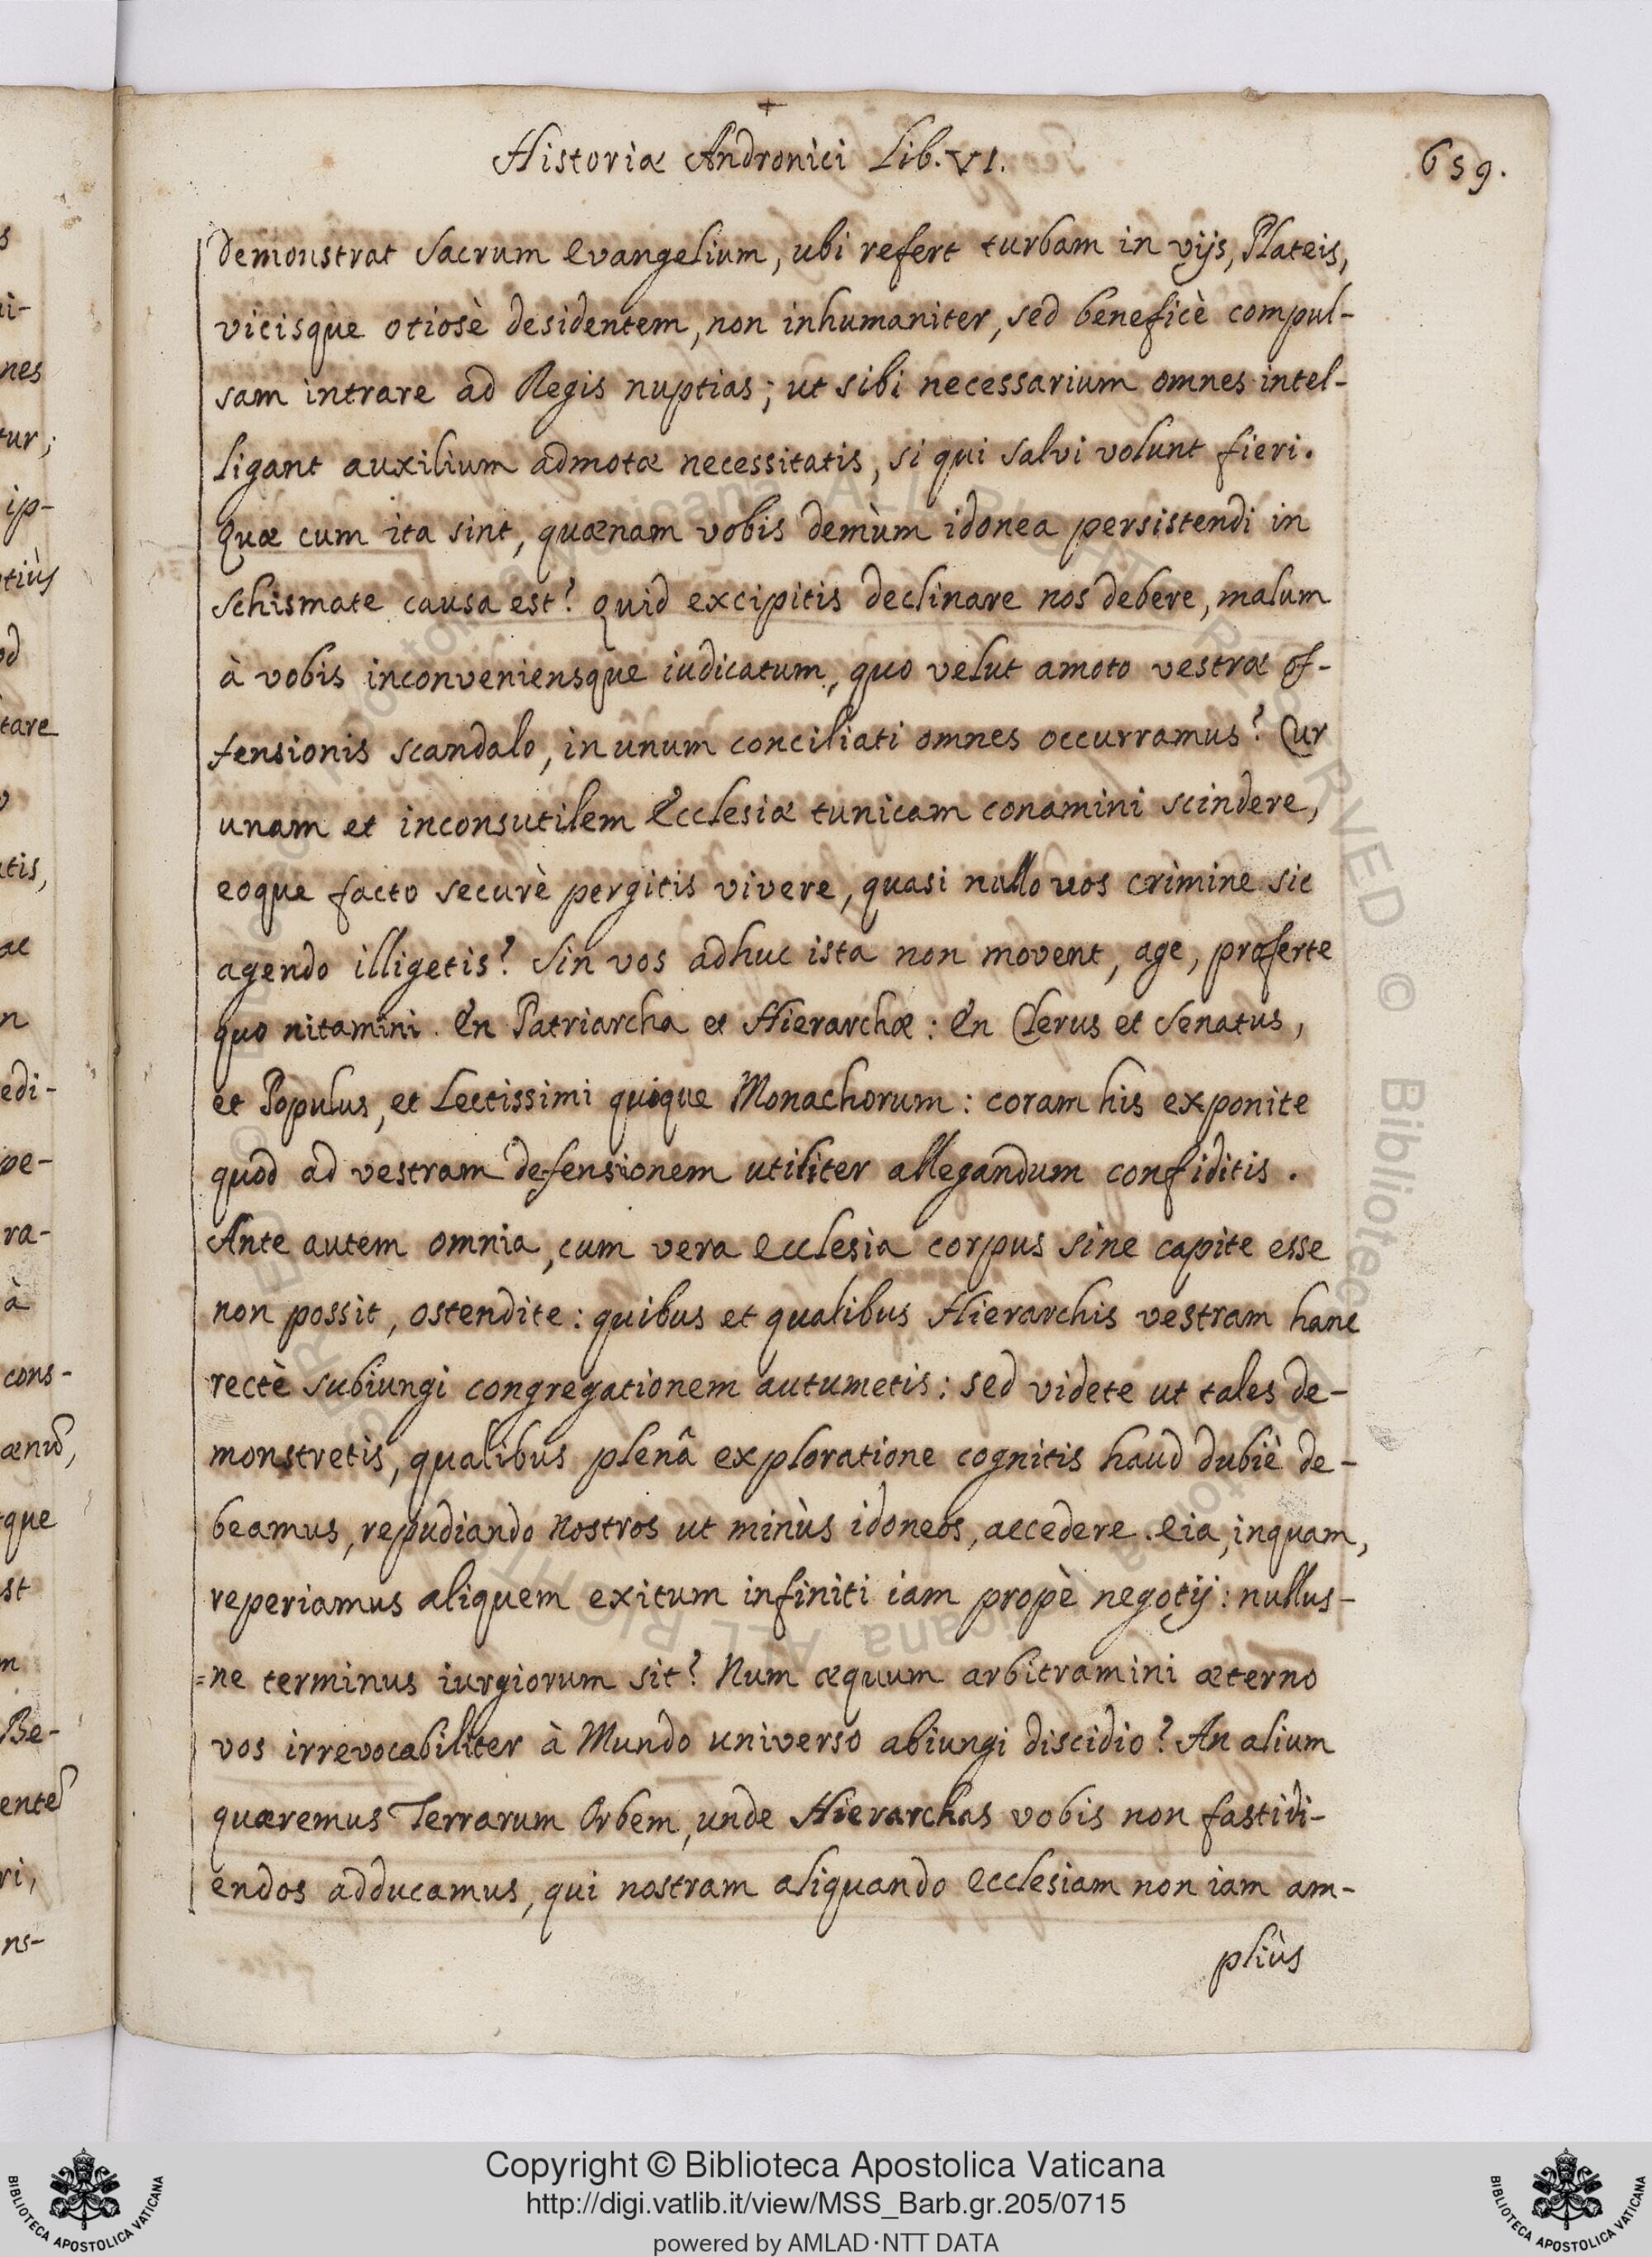 Historiæ Andronici Lib. VI.
659.
demonstrat Sacrum Evangelium, ubi refert turbam in vijs, Plateis,
vicisque otiosè desidentem, non inhumaniter, sed beneficè compul-
sam intrare ad Regis nuptias; ut sibi necessarium omnes intel-
ligant auxilium admotæ necessitatis, si qui salvi volunt fieri.
Quæ cum ita sint, quænam vobis demùm idonea persistendi in
Schismate causa est? Quid excipitis declinare nos debere, malum
à vobis inconveniensque iudicatum, quo velut amoto vestræ of-
fensionis scandalo, in unum conciliati omnes occurramus? Cur
unam et inconsutilem Ecclesiæ tunicam conamini scindere,
eoque facto securè pergitis vivere, quasi nullo vos crimine sic
agendo illigetis? Sin vos adhuc ista non movent, age, proferte
quo nitamini. En Patriarcha et Hierarchæ: En Clerus et Senatus,
et Populus, et Lectissimi quique Monachorum: coram his exponite
quod ad vestram defensionem utiliter allegandum confiditis.
Ante autem omnia, cum vera Ecclesia corpus sine capite esse
non possit, ostendite: quibus et qualibus Hierarchis vestram hanc
rectè subiungi congregationem autumetis: sed videte ut tales de-
monstretis, qualibus plenâ exploratione cognitis haud dubiè de-
beamus, repudiando nostros ut minùs idoneos, accedere. Eia, inquam,
reperiamus aliquem exitum infiniti iam propè negotij: nullus-
=ne terminus iurgiorum sit? Num æquum arbitramini æterno
vos irrevocabiliter à Mundo universo abiungi discidio? An alium
quæremus Terrarum Orbem, unde Hierarchas vobis non fastidi-
endos adducamus, qui nostram aliquando Ecclesiam non iam am-
pliùs
Copyright © Biblioteca Apostolica Vaticana
http://digi.vatlib.it/view/MSS_Barb.gr.205/0715
powered by AMLAD·NTT DATA
BIBLIOTECA APOSTOLICA VATICANA
BIBLIOTECA APOSTOLICA VATICANA